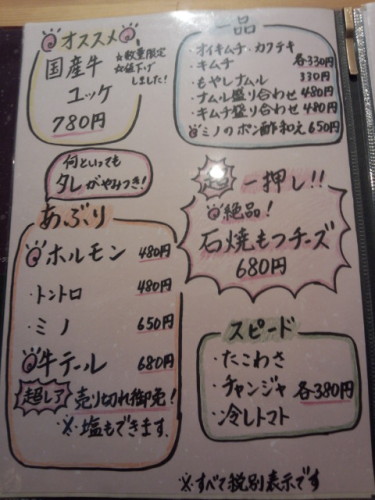 オススメ
☆数量限定
☆値下げしました!
国産牛
ユッケ
780円
一品
・オイキムチ・カクテキ
・キムチ 各330円
・もやしナムル 330円
・ナムル盛り合わせ 480円
・キムチ盛り合わせ 480円
ミノのポン酢和え 650円
何といっても
タレがやみつき!
超一押し!!
絶品!
石焼もつチーズ
680円
あぶり
ホルモン 480円
・トントロ 480円
・ミノ 650円
牛テール 680円
超レア 売り切れ御免!
※塩もできます。
スピード
・たこわさ
・チャンジャ 各380円
・冷しトマト
※すべて税別表示です